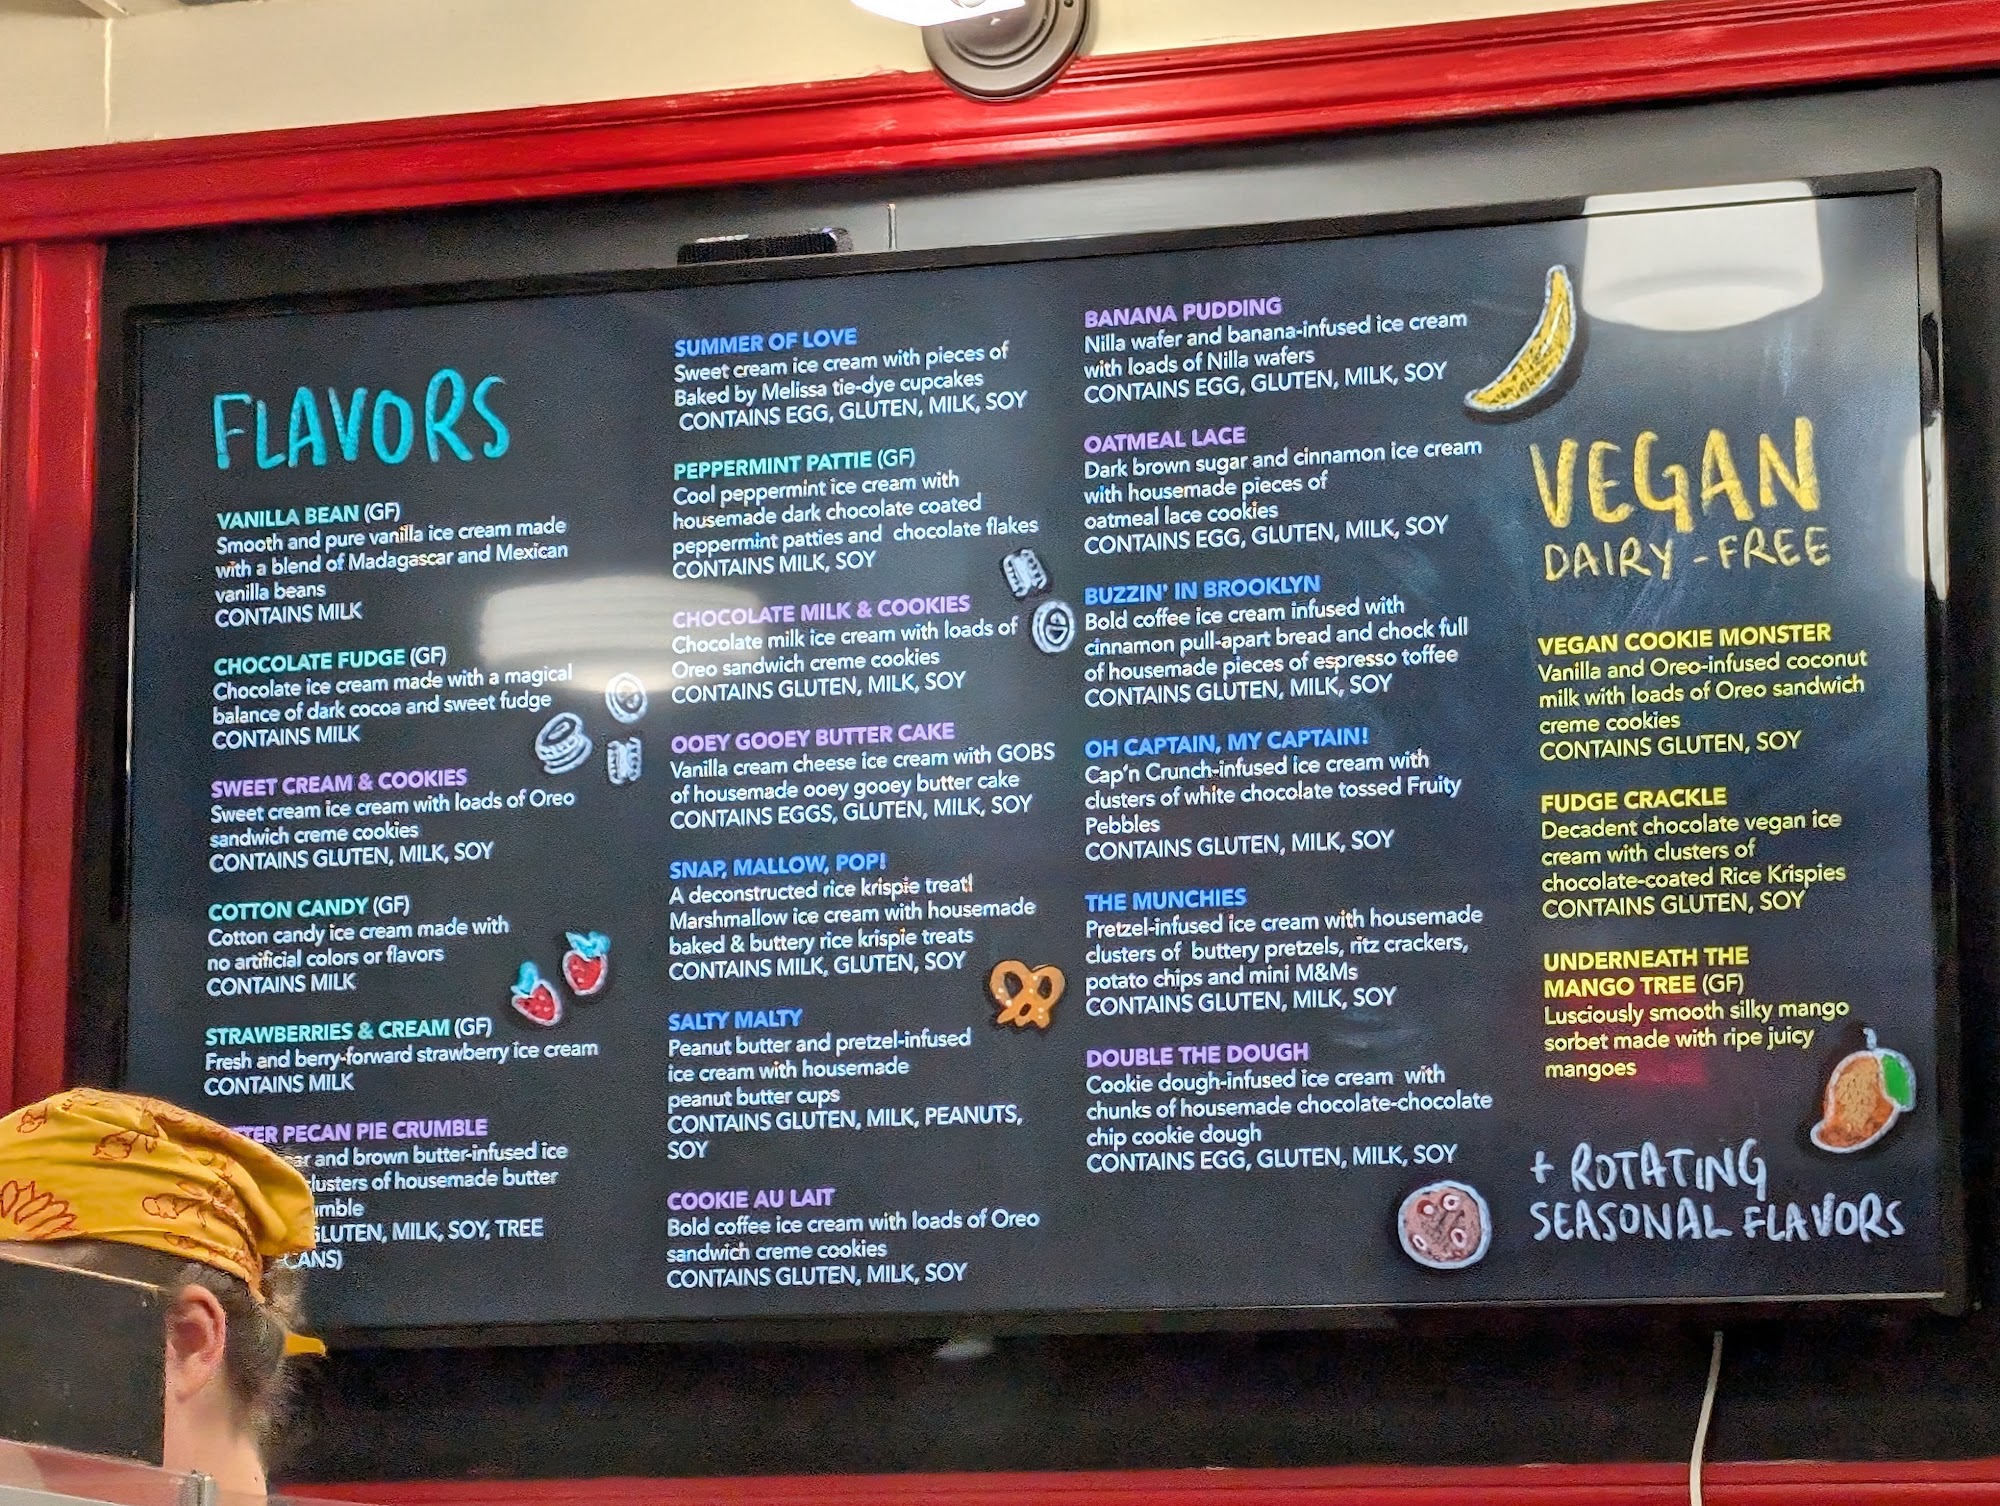 FLAVORS
VANILLA BEAN (GF)
Smooth and pure vanilla ice cream made
with a blend of Madagascar and Mexican
vanilla beans
CONTAINS MILK
CHOCOLATE FUDGE (GF)
Chocolate ice cream made with a magical
balance of dark cocoa and sweet fudge
CONTAINS MILK
SWEET CREAM & COOKIES
Sweet cream ice cream with loads of Oreo
sandwich creme cookies
CONTAINS GLUTEN, MILK, SOY
COTTON CANDY (GF)
Cotton candy ice cream made with
no artificial colors or flavors
CONTAINS MILK
STRAWBERRIES & CREAM (GF)
Fresh and berry-forward strawberry ice cream
CONTAINS MILK
PECAN PIE CRUMBLE
and brown butter-infused ice
of housemade butter
GLUTEN, MILK, SOY, TREE
SUMMER OF LOVE
Sweet cream ice cream with pieces of
Baked by Melissa tie-dye cupcakes
CONTAINS EGG, GLUTEN, MILK, SOY
PEPPERMINT PATTIE (GF)
Cool peppermint ice cream with
housemade dark chocolate coated
peppermint patties and chocolate flakes
CONTAINS MILK, SOY
CHOCOLATE MILK & COOKIES
Chocolate milk ice cream with loads of
Oreo sandwich creme cookies
CONTAINS GLUTEN, MILK, SOY
OOEY GOOEY BUTTER CAKE
Vanilla cream cheese ice cream with GOBS
of housemade ooey gooey butter cake
CONTAINS EGGS, GLUTEN, MILK, SOY
SNAP, MALLOW, POP!
A deconstructed rice krispie treat!
Marshmallow ice cream with housemade
baked & buttery rice krispie treats
CONTAINS MILK, GLUTEN, SOY
SALTY MALTY
Peanut butter and pretzel-infused
ice cream with housemade
peanut butter cups
CONTAINS GLUTEN, MILK, PEANUTS,
SOY
COOKIE AU LAIT
Bold coffee ice cream with loads of Oreo
sandwich creme cookies
CONTAINS GLUTEN, MILK, SOY
BANANA PUDDING
Nilla wafer and banana-infused ice cream
with loads of Nilla wafers
CONTAINS EGG, GLUTEN, MILK, SOY
OATMEAL LACE
Dark brown sugar and cinnamon ice cream
with housemade pieces of
oatmeal lace cookies
CONTAINS EGG, GLUTEN, MILK, SOY
BUZZIN' IN BROOKLYN
Bold coffee ice cream infused with
cinnamon pull-apart bread and chock full
of housemade pieces of espresso toffee
CONTAINS GLUTEN, MILK, SOY
OH CAPTAIN, MY CAPTAIN!
Cap'n Crunch-infused ice cream with
clusters of white chocolate tossed Fruity
Pebbles
CONTAINS GLUTEN, MILK, SOY
THE MUNCHIES
Pretzel-infused ice cream with housemade
clusters of buttery pretzels, ritz crackers,
potato chips and mini M&Ms
CONTAINS GLUTEN, MILK, SOY
DOUBLE THE DOUGH
Cookie dough-infused ice cream with
chunks of housemade chocolate-chocolate
chip cookie dough
CONTAINS EGG, GLUTEN, MILK, SOY
VEGAN
DAIRY-FREE
VEGAN COOKIE MONSTER
Vanilla and Oreo-infused coconut
milk with loads of Oreo sandwich
creme cookies
CONTAINS GLUTEN, SOY
FUDGE CRACKLE
Decadent chocolate vegan ice
cream with clusters of
chocolate-coated Rice Krispies
CONTAINS GLUTEN, SOY
UNDERNEATH THE
MANGO TREE (GF)
Lusciously smooth silky mango
sorbet made with ripe juicy
mangoes
+ ROTATING
SEASONAL FLAVORS